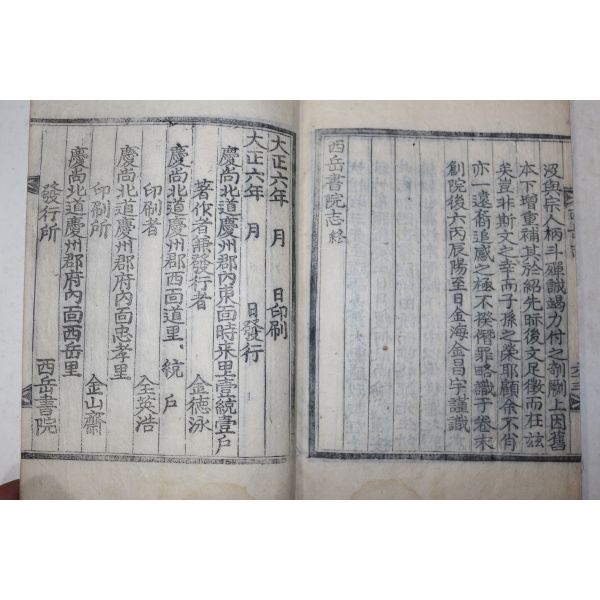 沒與宗人柄斗殫誠竭力付之剞劂上因舊
本下增重補其於紹先眎後文足徵而在玆
矣豈非斯文之幸而子孫之榮耶顧余不肖
亦一遠裔追感之極不揆僭罪略識于卷末
創院後六丙辰陽至日金海金昌宇謹識
西岳書院志終
大正六年 月 日印刷
大正六年 月 日發行
慶尚北道慶州郡內東面時來里壹統壹戶
著作者兼發行者 金德泳
慶尚北道慶州郡西面道里 統 戶
印刷者 全英浩
慶尚北道慶州郡府內面忠孝里
印刷所 金山齋
慶尚北道慶州郡府內面西岳里
發行所 西岳書院